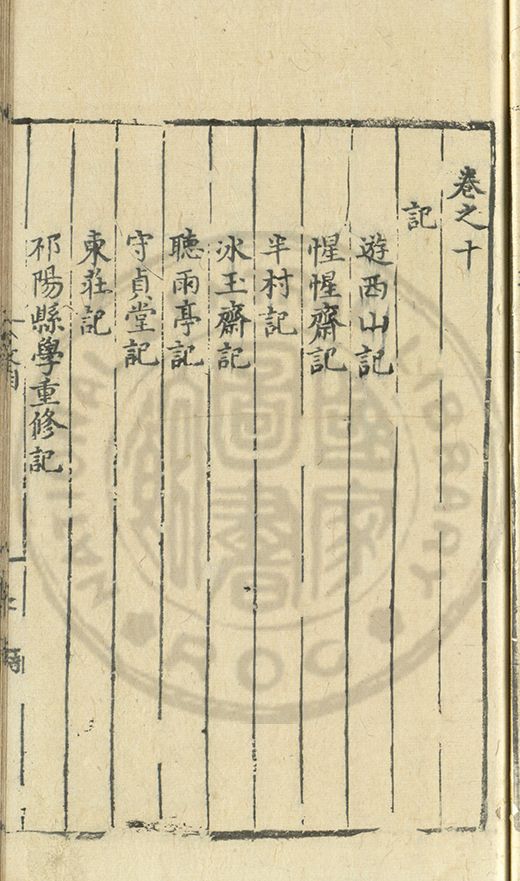 卷之十
記
遊西山記
惺惺齋記
半村記
冰玉齋記
聽雨亭記
守貞堂記
東莊記
祁陽縣學重修記